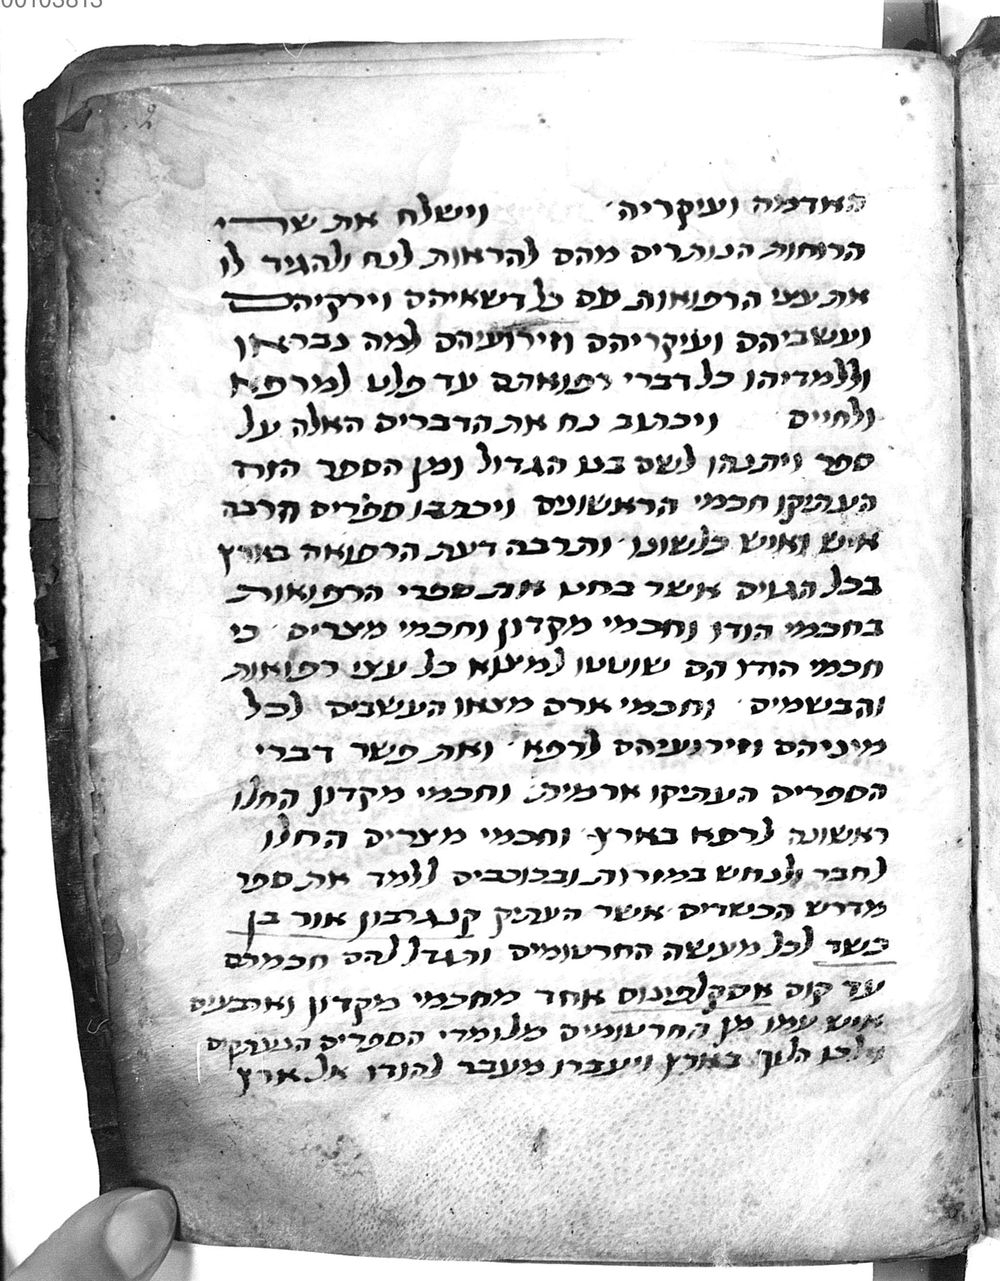 00103813
2
האדמה ועיקריה וישלח את שרי
הרוחות הנותרים מהם להראות לנח ולהגיד לו
את עצי הרפואות עם כל דשאיהם וירקיהם
ועשביהם ועיקריהם וזירועיהם למה נבראו
וללמדיהו כל דברי רפואתם עד פלט למרפא
ולחיים ויכתוב נח את הדברים האלה על
ספר ויתנהו לשם בנו הגדול ומן הספר הזה
העתיקו חכמי הראשונים ויכתבו ספרים הרבה
איש ואיש בלשונו ותרבה דעת הרפואה בארץ
בכל הגוים אשר בחנו את ספרי הרפואות
בחכמי הודו וחכמי מקדון וחכמי מצרים כי
חכמי הודו הם שוטטו למצוא כל עצי רפואות
והבשמים וחכמי ארם מצאו העשבים לכל
מיניהם וזירועיהם לרפא ואת פשר דברי
הספרים העתיקו ארמית וחכמי מקדון החלו
ראשונה לרפא בארץ וחכמי מצרים החלו
לחבר ולנחש במזרות ובכוכבים ללמד את ספר
מדרש הכשדים אשר העתיק קנגרבון אור בן
כשד לכל מעשה החרטומים ותגדל להם חכמתם
עד קום אסקלפינוס אחד מחכמי מקדון וארבעים
איש עמו מן החרטומים מלומדי הספרים הנעתקים
וילכו הלוך בארץ ויעברו מעבר להודו אל ארץ